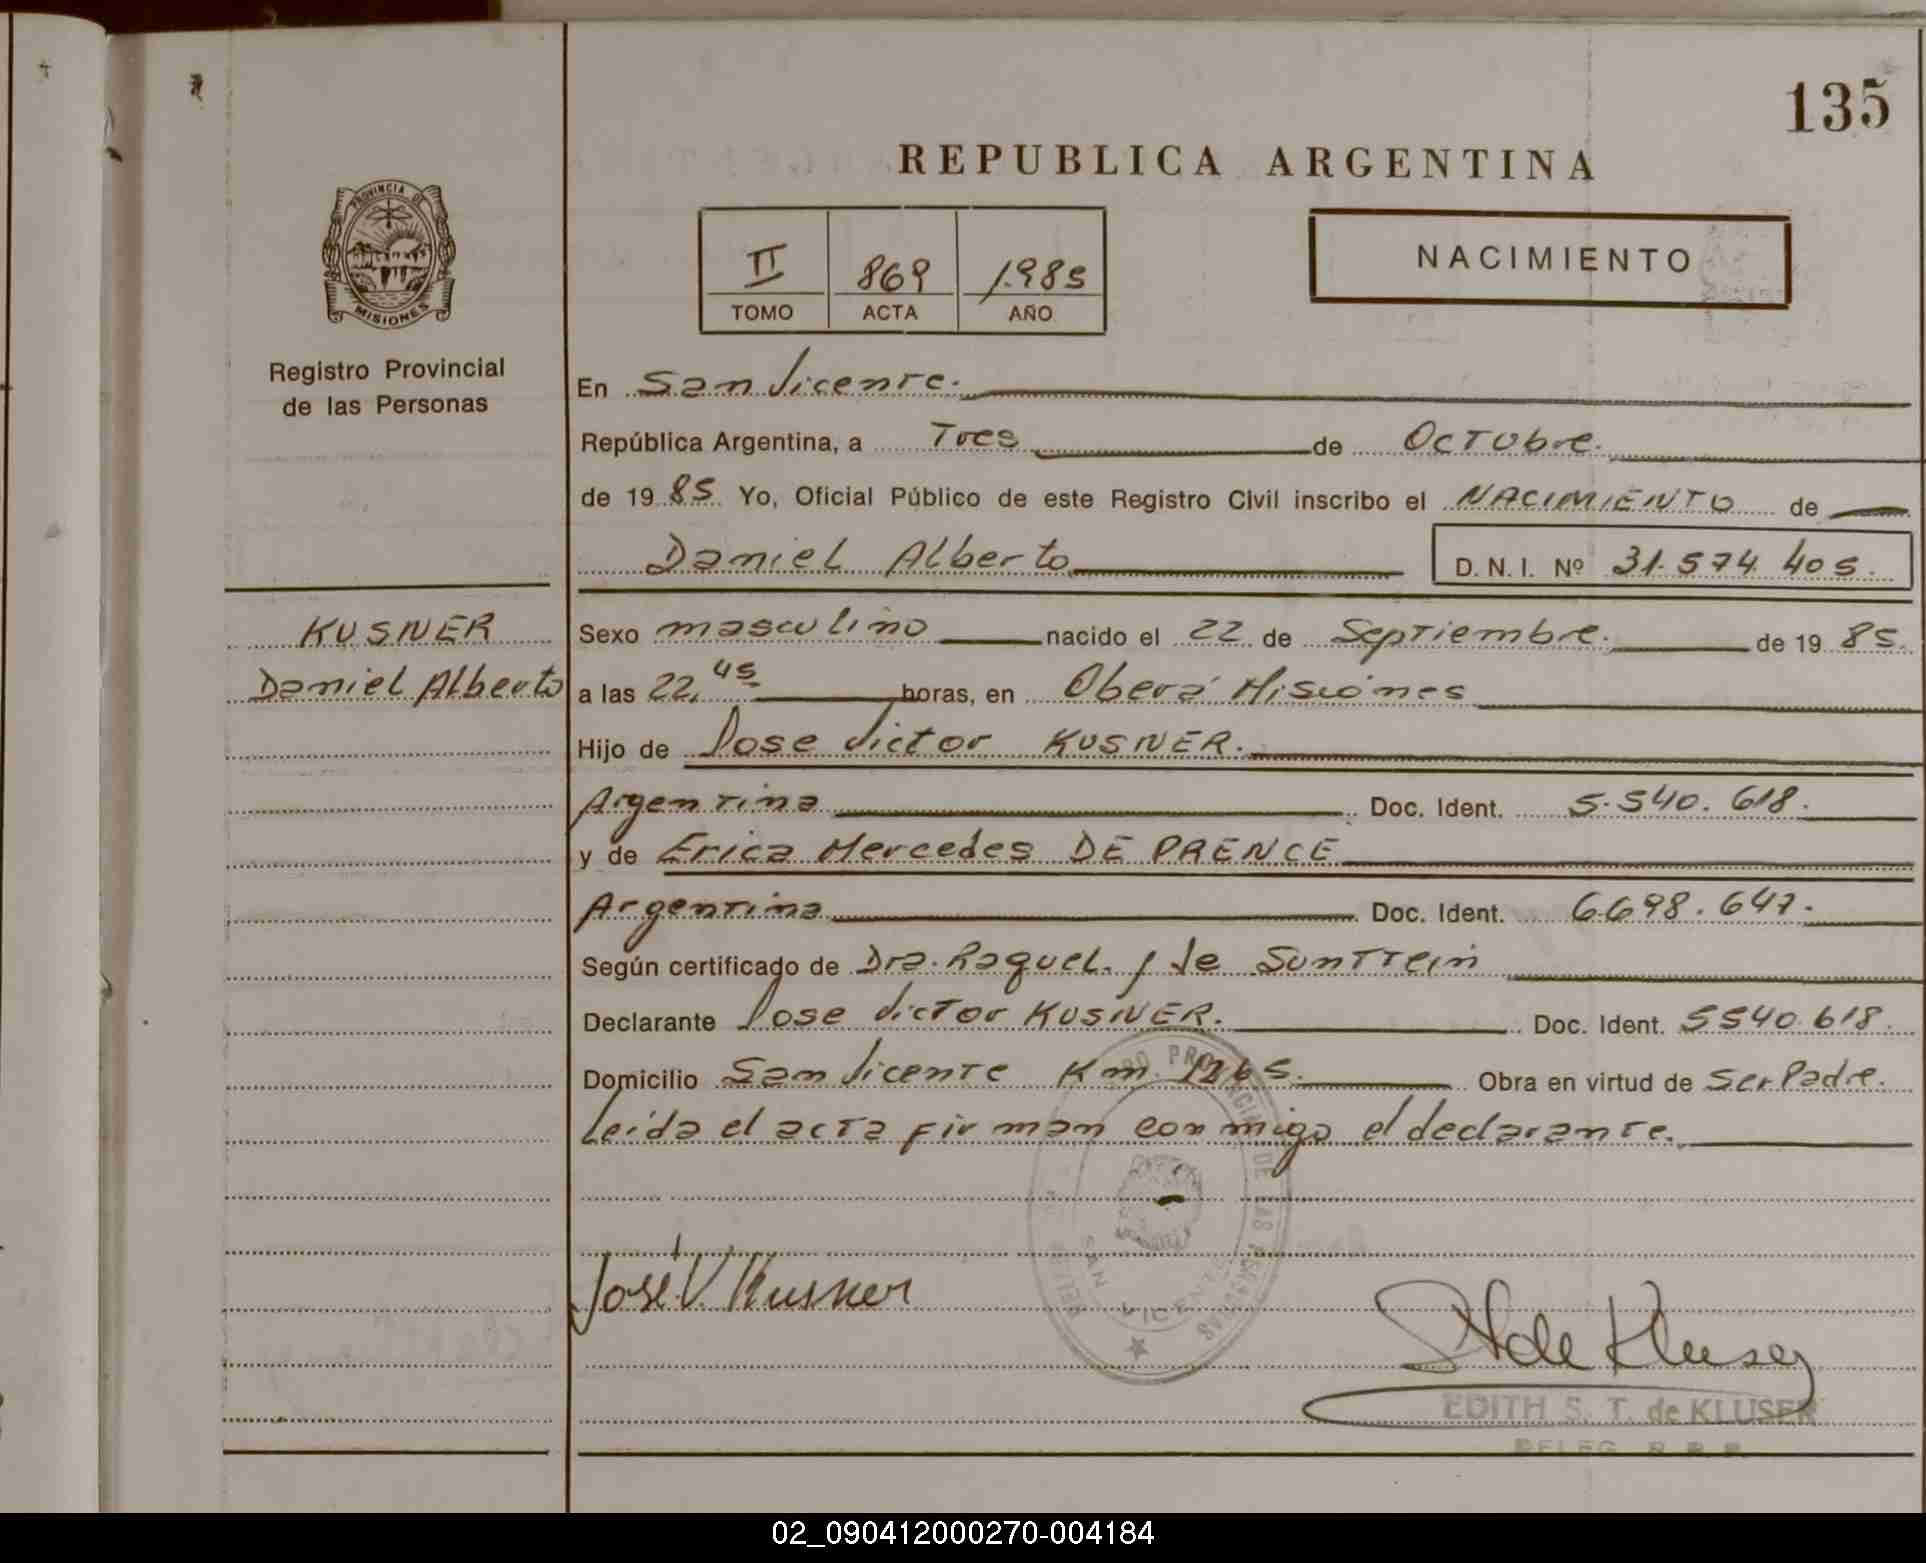 135
REPUBLICA ARGENTINA
PROVINCIA DE
MISIONES
Registro Provincial
de las Personas
II 869 1.985
TOMO ACTA AÑO
NACIMIENTO
En San Vicente.
República Argentina, a Tres de Octubre.
de 19 85 Yo, Oficial Público de este Registro Civil inscribo el NACIMIENTO de
Daniel Alberto D. N. I. Nº 31.574.405.
KUSNER
Daniel Alberto
Sexo masculino nacido el 22 de Septiembre. de 19 85.
a las 22,45 horas, en Oberá Misiones
Hijo de Jose Victor KUSNER.
Argentina Doc. Ident. 5.540.618.
y de Erica Mercedes DE PRENCE
Argentina Doc. Ident. 6.698.647.
Según certificado de Dra. Raquel. J de
Declarante Jose Victor KUSNER. Doc. Ident. 5540.618.
Domicilio San Vicente Km 1265. Obra en virtud de Ser Padre.
Leída el acta firman conmigo el declarante.
PROVINCIAL DE LAS PERSONAS
SAN VICENTE
José V. Kusner
de Kluser
EDITH S. T. de KLUSER
DELEG. R.P.P.
02_090412000270-004184